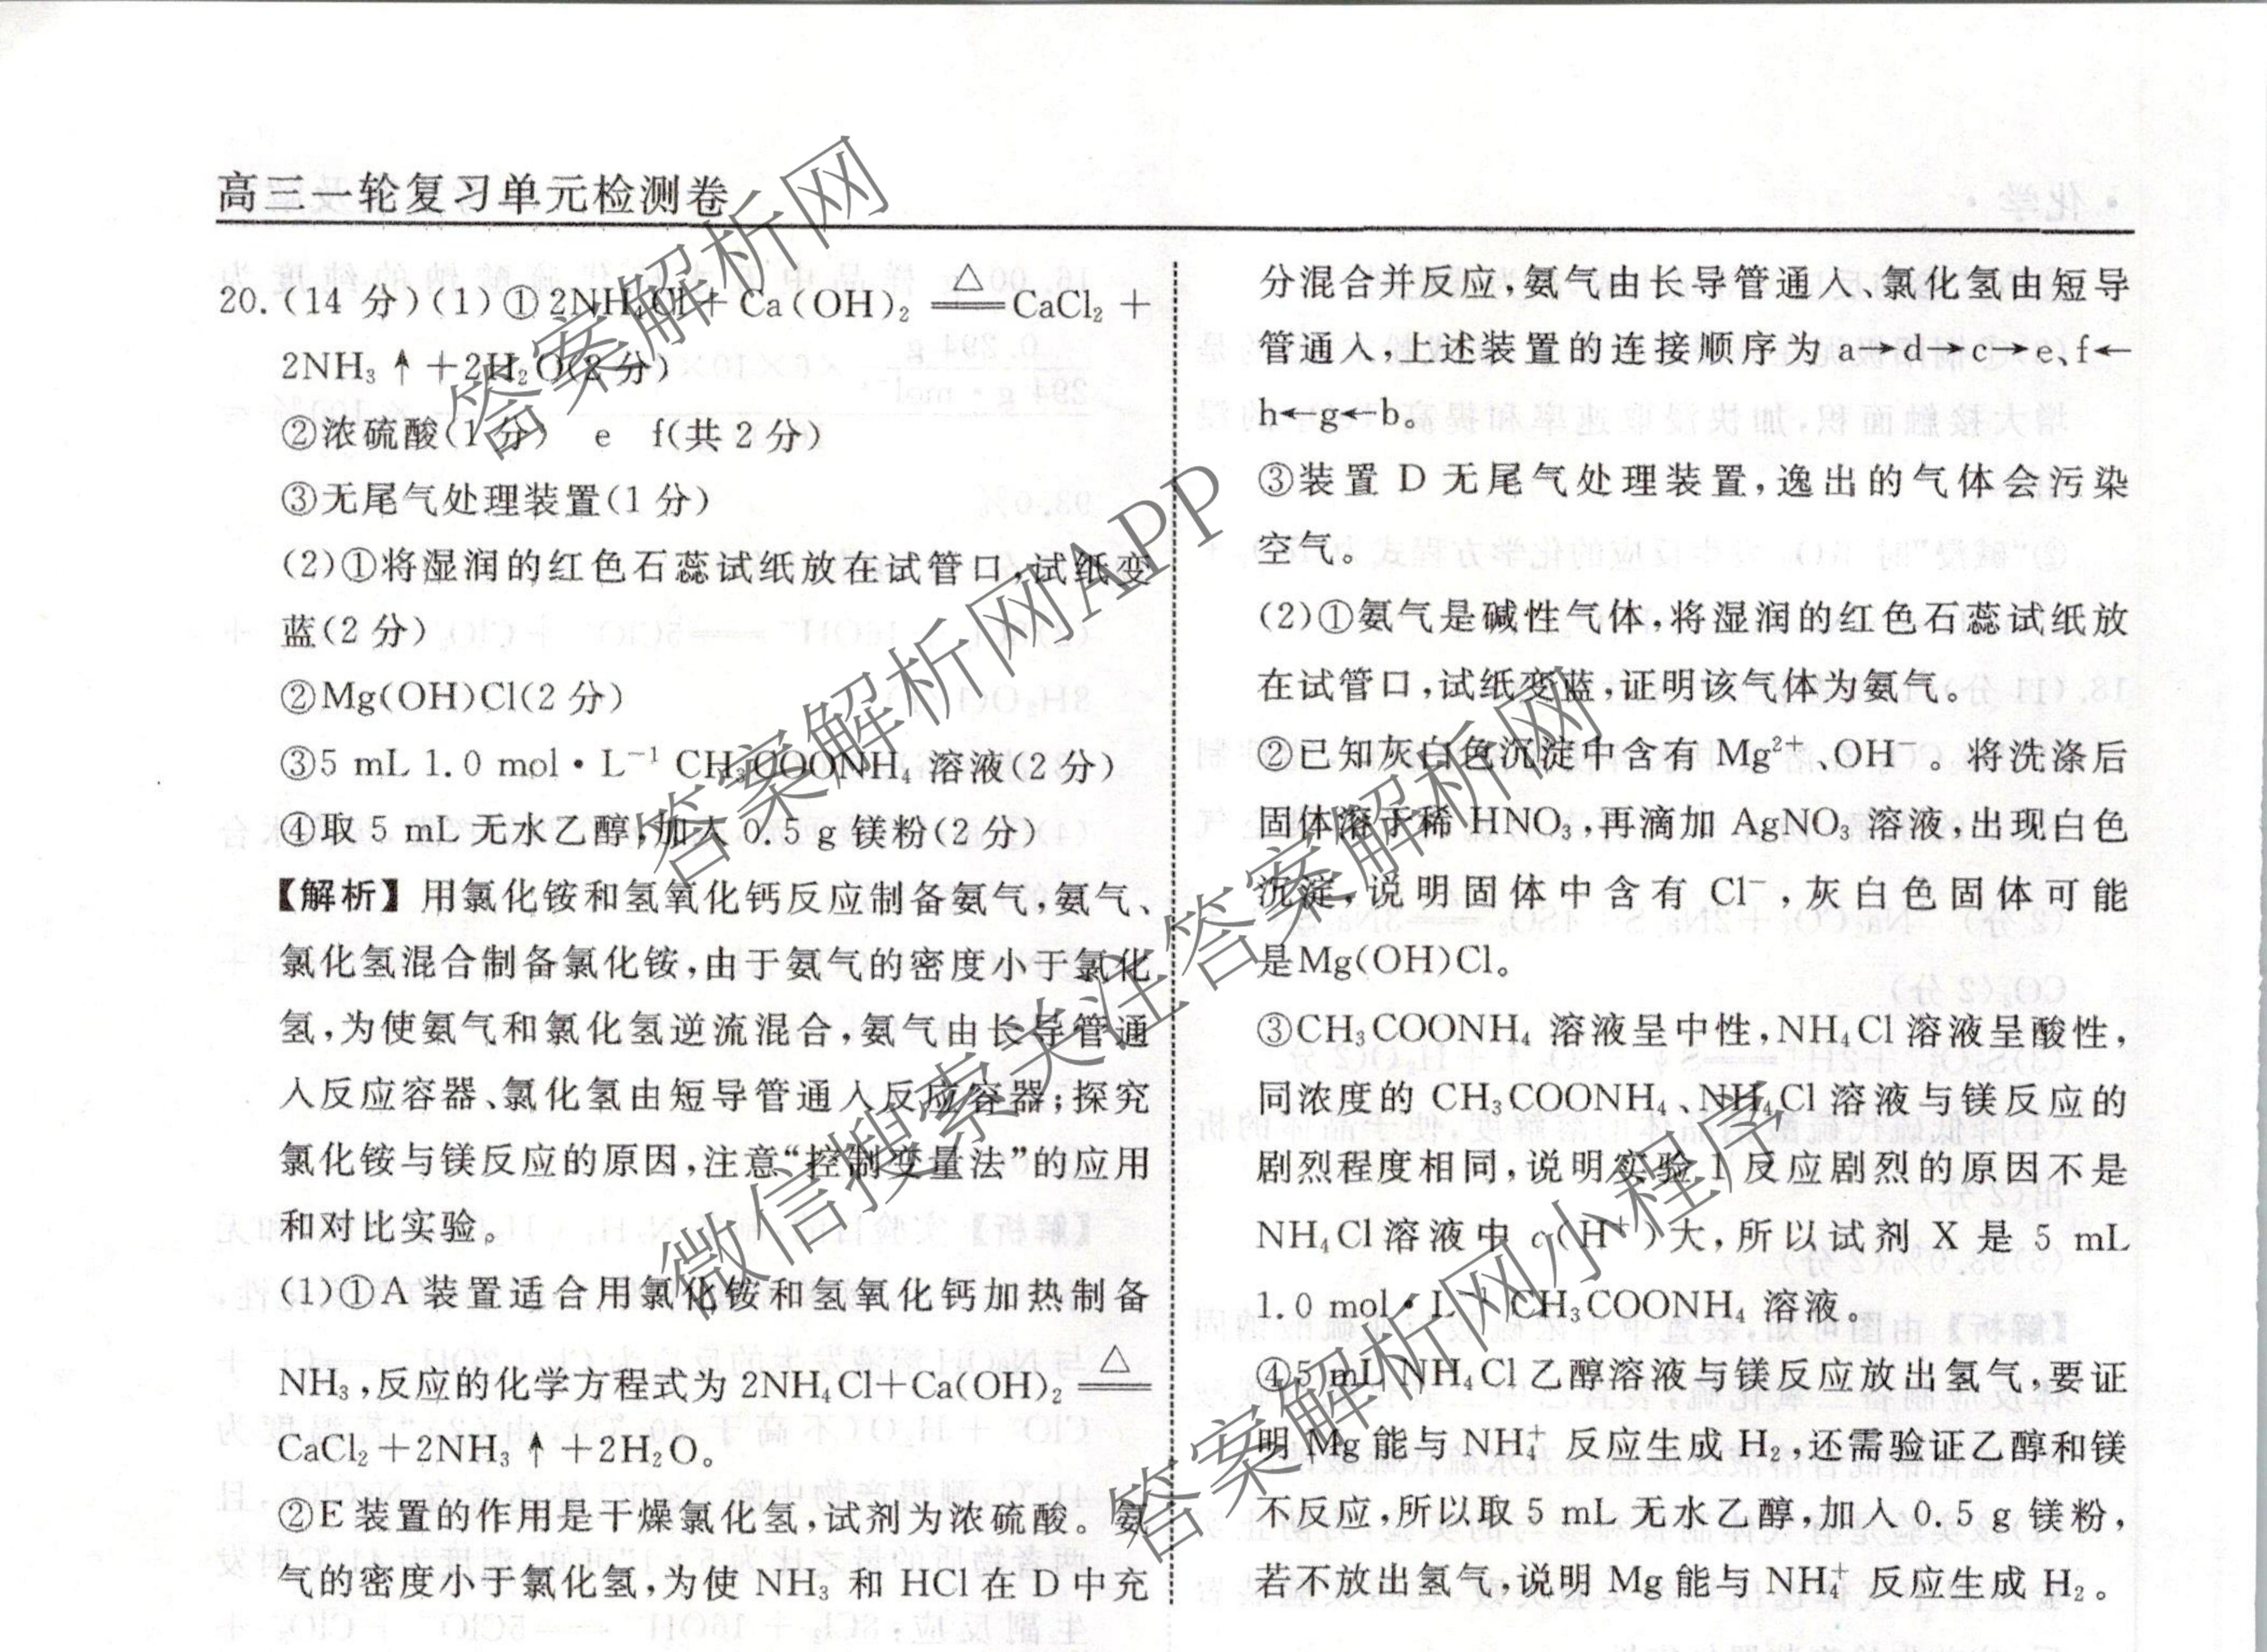 高三一轮复习单元检测卷
20.(14 分)(1)①2NH₄Cl+Ca(OH)₂ ══△══ CaCl₂+
2NH₃↑+2H₂O(2分)
②浓硫酸(1分) e f(共2分)
③无尾气处理装置(1分)
(2)①将湿润的红色石蕊试纸放在试管口,试纸变
蓝(2分)
②Mg(OH)Cl(2分)
③5 mL 1.0 mol·L⁻¹ CH₃COONH₄ 溶液(2分)
④取 5 mL 无水乙醇,加入 0.5 g 镁粉(2分)
【解析】用氯化铵和氢氧化钙反应制备氨气,氨气、
氯化氢混合制备氯化铵,由于氨气的密度小于氯化
氢,为使氨气和氯化氢逆流混合,氨气由长导管通
入反应容器、氯化氢由短导管通入反应容器;探究
氯化铵与镁反应的原因,注意“控制变量法”的应用
和对比实验。
(1)①A 装置适合用氯化铵和氢氧化钙加热制备
NH₃,反应的化学方程式为 2NH₄Cl+Ca(OH)₂ ══△══
CaCl₂+2NH₃↑+2H₂O。
②E 装置的作用是干燥氯化氢,试剂为浓硫酸。氨
气的密度小于氯化氢,为使 NH₃ 和 HCl 在 D 中充
分混合并反应,氨气由长导管通入、氯化氢由短导
管通入,上述装置的连接顺序为 a→d→c→e、f←
h←g←b。
③装置 D 无尾气处理装置,逸出的气体会污染
空气。
(2)①氨气是碱性气体,将湿润的红色石蕊试纸放
在试管口,试纸变蓝,证明该气体为氨气。
②已知灰白色沉淀中含有 Mg²⁺、OH⁻。将洗涤后
固体溶于稀 HNO₃,再滴加 AgNO₃ 溶液,出现白色
沉淀,说明固体中含有 Cl⁻,灰白色固体可能
是Mg(OH)Cl。
③CH₃COONH₄ 溶液呈中性,NH₄Cl 溶液呈酸性,
同浓度的 CH₃COONH₄、NH₄Cl 溶液与镁反应的
剧烈程度相同,说明实验 1 反应剧烈的原因不是
NH₄Cl 溶液中 c(H⁺)大,所以试剂 X 是 5 mL
1.0 mol·L⁻¹ CH₃COONH₄ 溶液。
④5 mL NH₄Cl 乙醇溶液与镁反应放出氢气,要证
明 Mg 能与 NH₄⁺ 反应生成 H₂,还需验证乙醇和镁
不反应,所以取 5 mL 无水乙醇,加入 0.5 g 镁粉,
若不放出氢气,说明 Mg 能与 NH₄⁺ 反应生成 H₂。
答案解析网
答案解析网APP
微信搜索关注答案解析网
答案解析网小程序